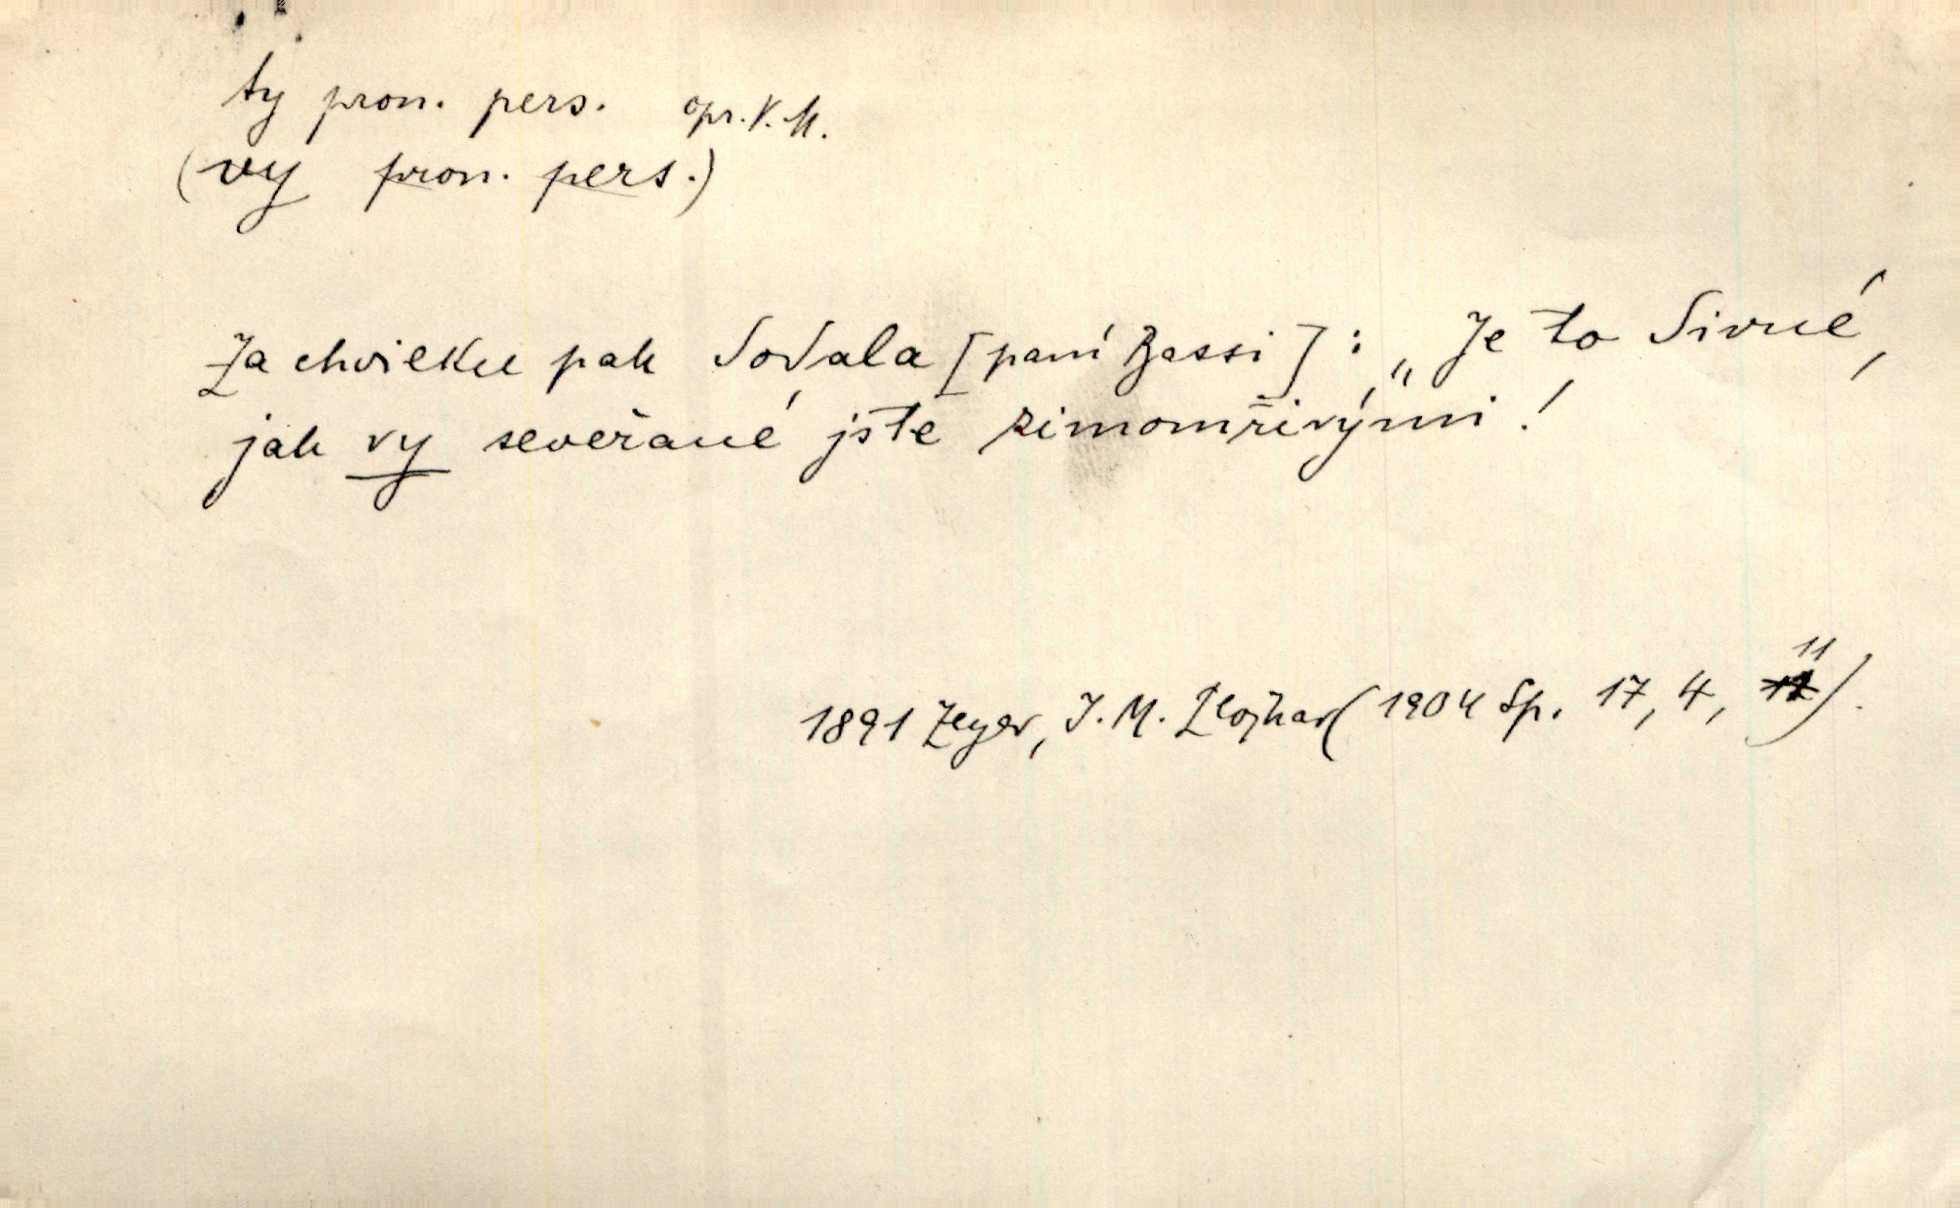 ty pron. pers. opr. V. M.
(vy pron. pers.)
Za chvilku pak dodala [paní Bassi]: „Je to divné,
jak vy severané jste zimomřivými!
11
1891 Zeyer, J. M. Plojhar (1904 Sp. 17, 4, 12).